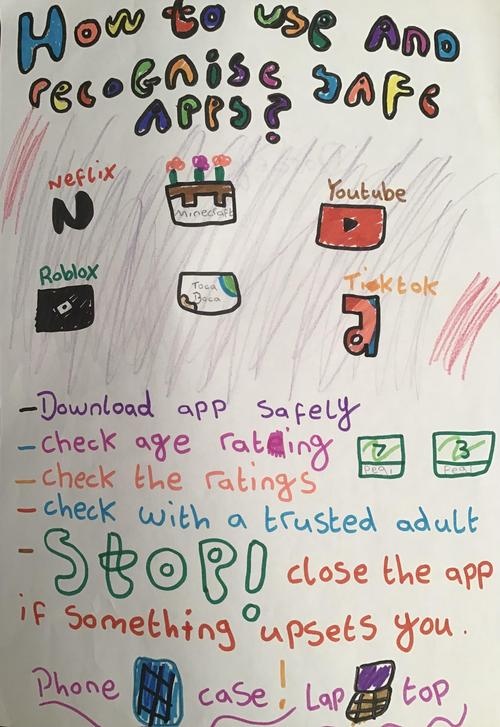 How to use AND
recognise SAFE
APPS?
Neflix
Minecraft
Youtube
Roblox
Toca
Boca
Ticktok
-Download app safely
-check age rating
7
3
Pegi
Pegi
-check the ratings
-check with a trusted adult
-Stop! close the app
if something upsets you.
Phone case! Lap top